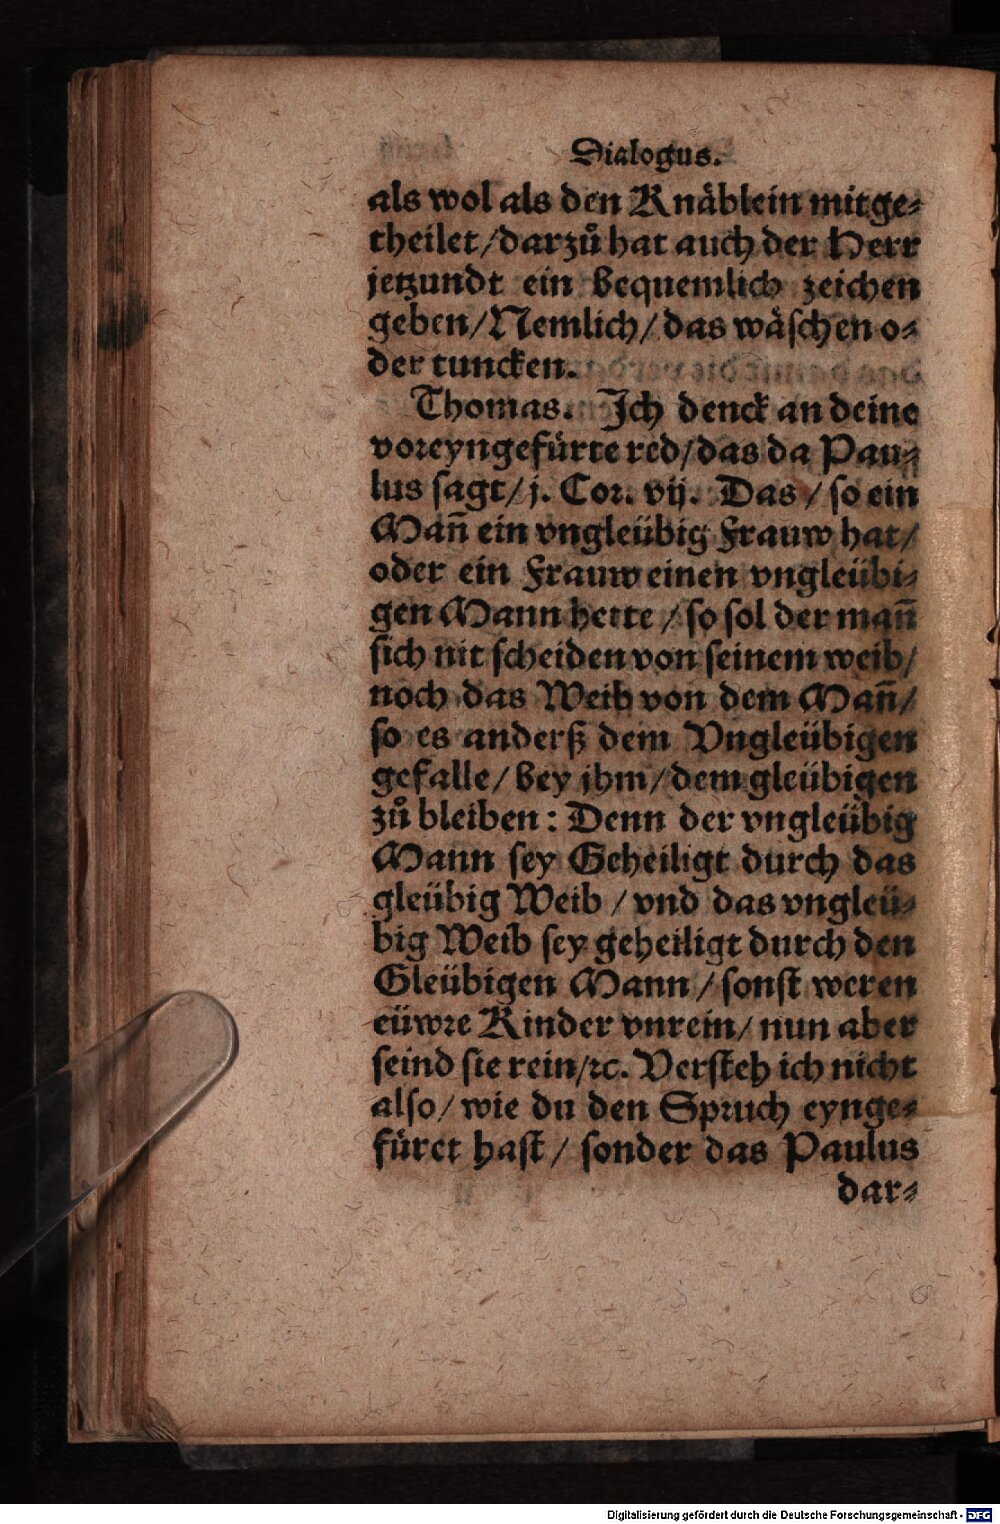 Dialogus.
als wol als den Knäblein mitge⸗
theilet/darzů hat auch der Herr
jetzundt ein bequemlich zeichen
geben/Nemlich/das wäschen o⸗
der tuncken.
Thomas. Ich denck an deine
voreyngefürte red/das da Pau⸗
lus sagt/j. Cor. vij. Das/so ein
Mañ ein vngleübig Frauw hat/
oder ein Frauw einen vngleübi⸗
gen Mann hette/so sol der mañ
sich nit scheiden von seinem weib/
noch das Weib von dem Mañ/
so es anderß dem Vngleübigen
gefalle/bey jhm/dem gleübigen
zů bleiben: Denn der vngleübig
Mann sey Geheiligt durch das
gleübig Weib/vnd das vngleü⸗
big Weib sey geheiligt durch den
Gleübigen Mann/sonst weren
eüwre Kinder vnrein/nun aber
seind sie rein/ꝛc. Versteh ich nicht
also/wie du den Spruch eynge⸗
füret hast/sonder das Paulus
dar⸗
Digitalisierung gefördert durch die Deutsche Forschungsgemeinschaft - DFG